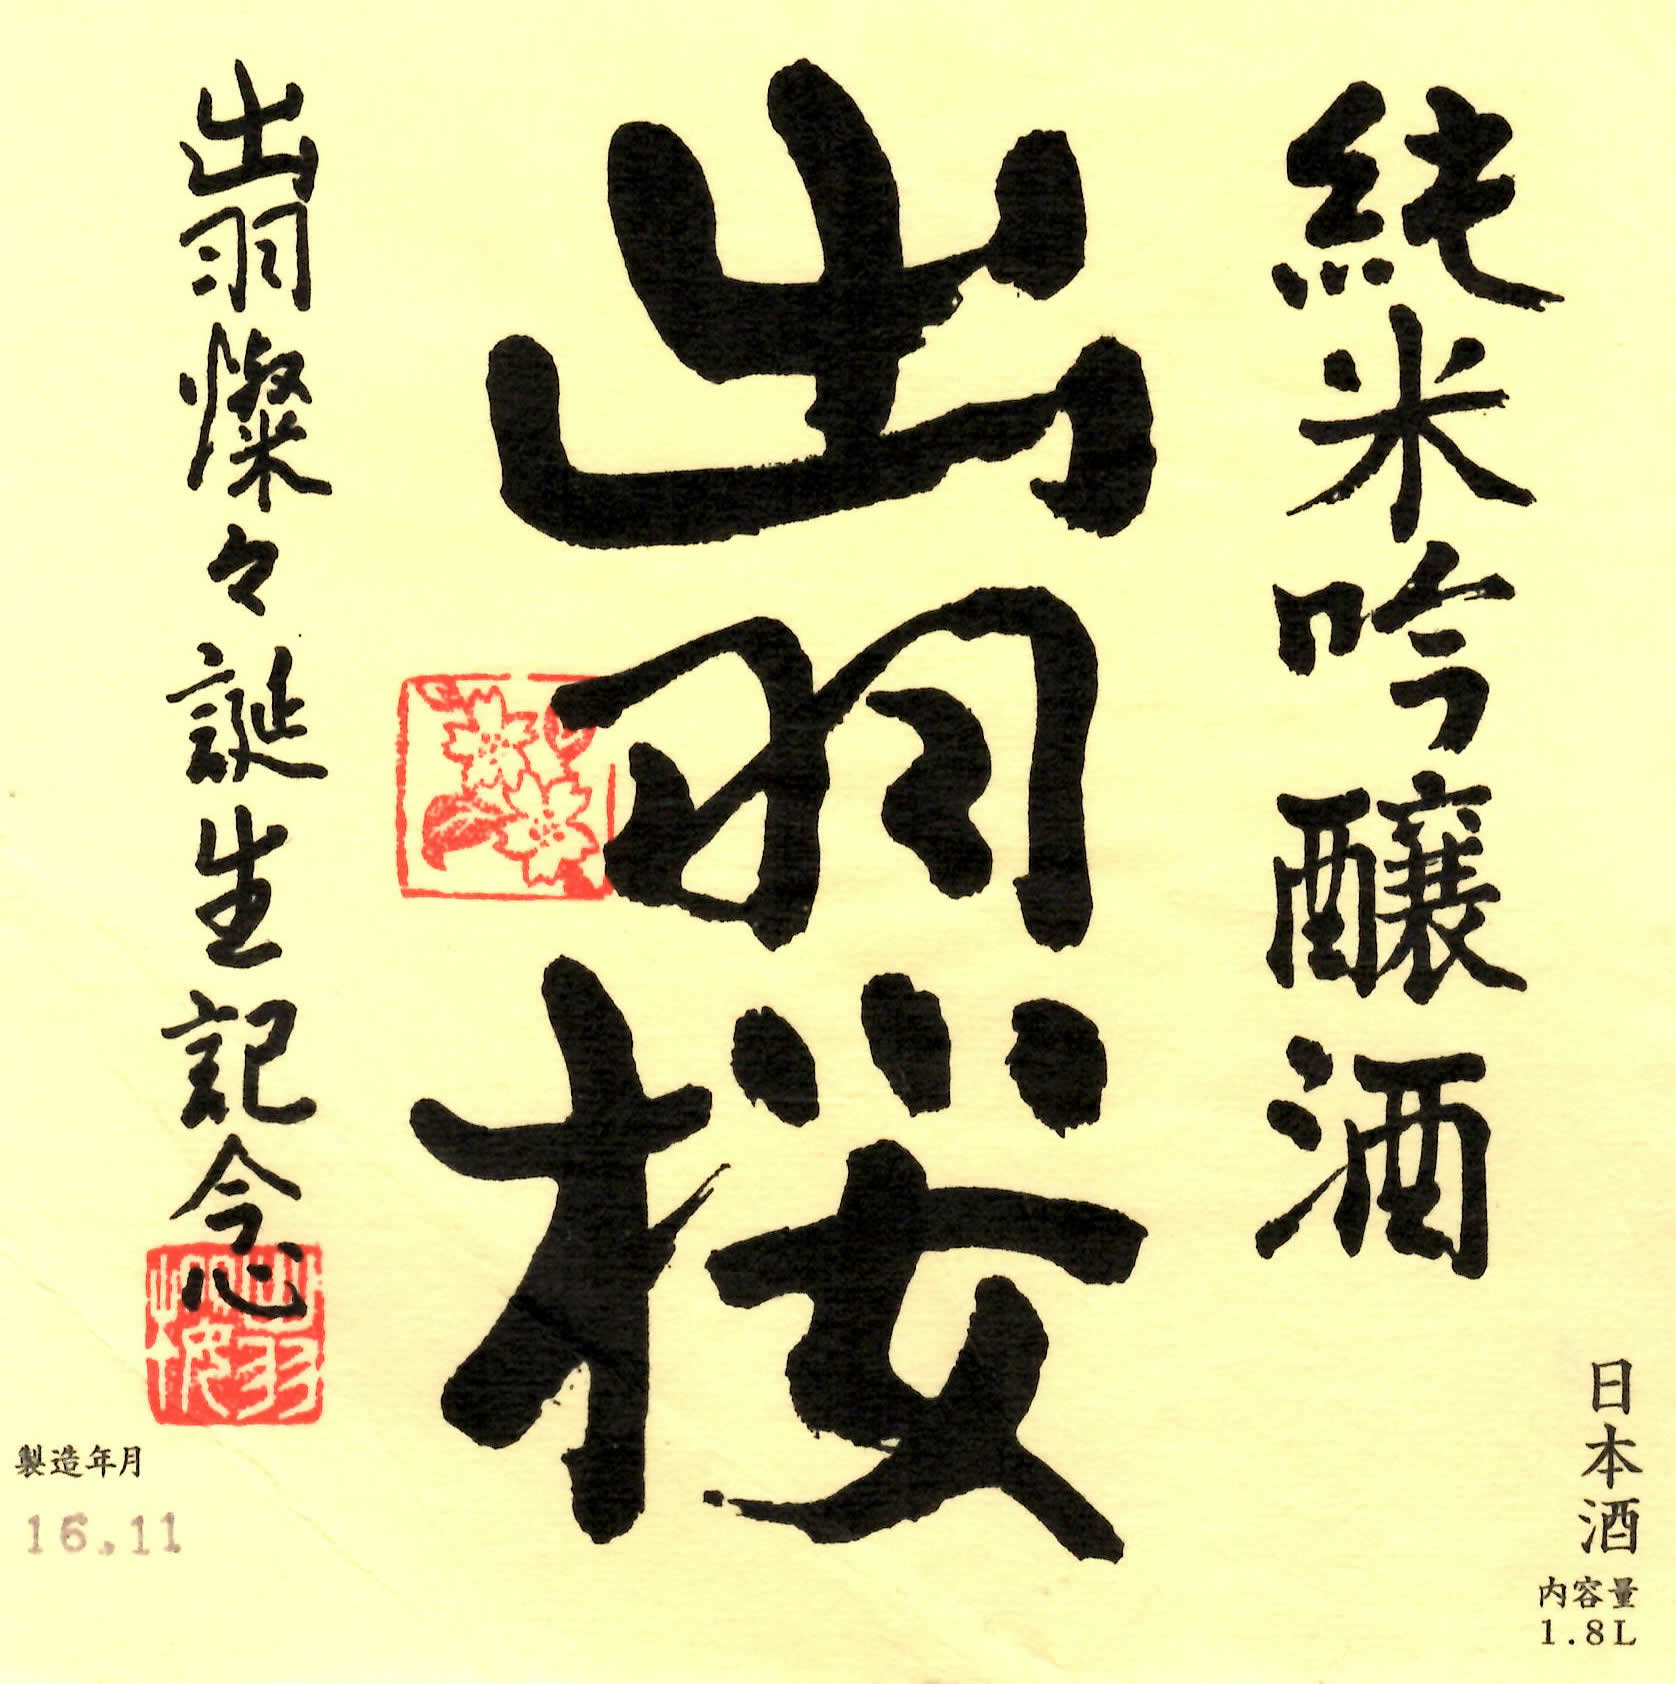 純米吟醸酒
出羽桜
出羽燦々誕生記念
出羽桜
日本酒
内容量
1.8L
製造年月
16.11